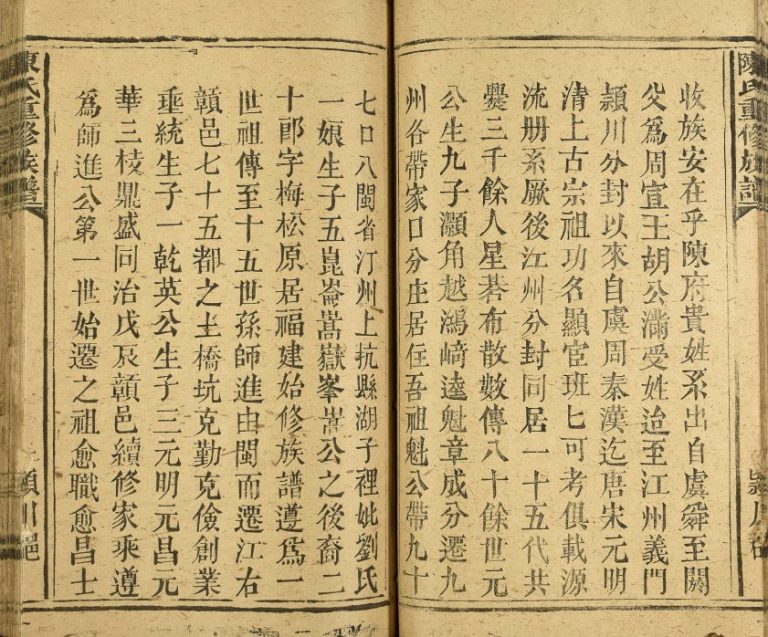 陳氏重修族譜
收族安在乎陳府貴姓系出自虞舜至閼
父爲周宣王胡公滿受姓迨至江州義門
潁川分封以來自虞周秦漢迄唐宋元明
清上古宗祖功名顯宦班匕可考俱載源
流册系厥後江州分封同居一十五代共
爨三千餘人星碁布散數傳八十餘世元
公生九子灝角越鴻﨑逵魁章成分遷九
州各帶家口分庄居住吾祖魁公帶九十
七口八閩省汀州上抗縣湖子裡妣劉氏
一娘生子五崑崙嵩嶽峯嵩公之後裔二
十郎字梅松原居福建始修族譜遵爲一
世祖傳至十五世孫師進由閩而遷江右
贛邑七十五都之土橋坑克勤克儉創業
垂統生子一乾英公生子三元明元昌元
華三枝鼎盛同治戊辰贛邑續修家乘遵
爲師進公第一世始遷之祖愈職愈昌士
陳氏重修族譜
潁川